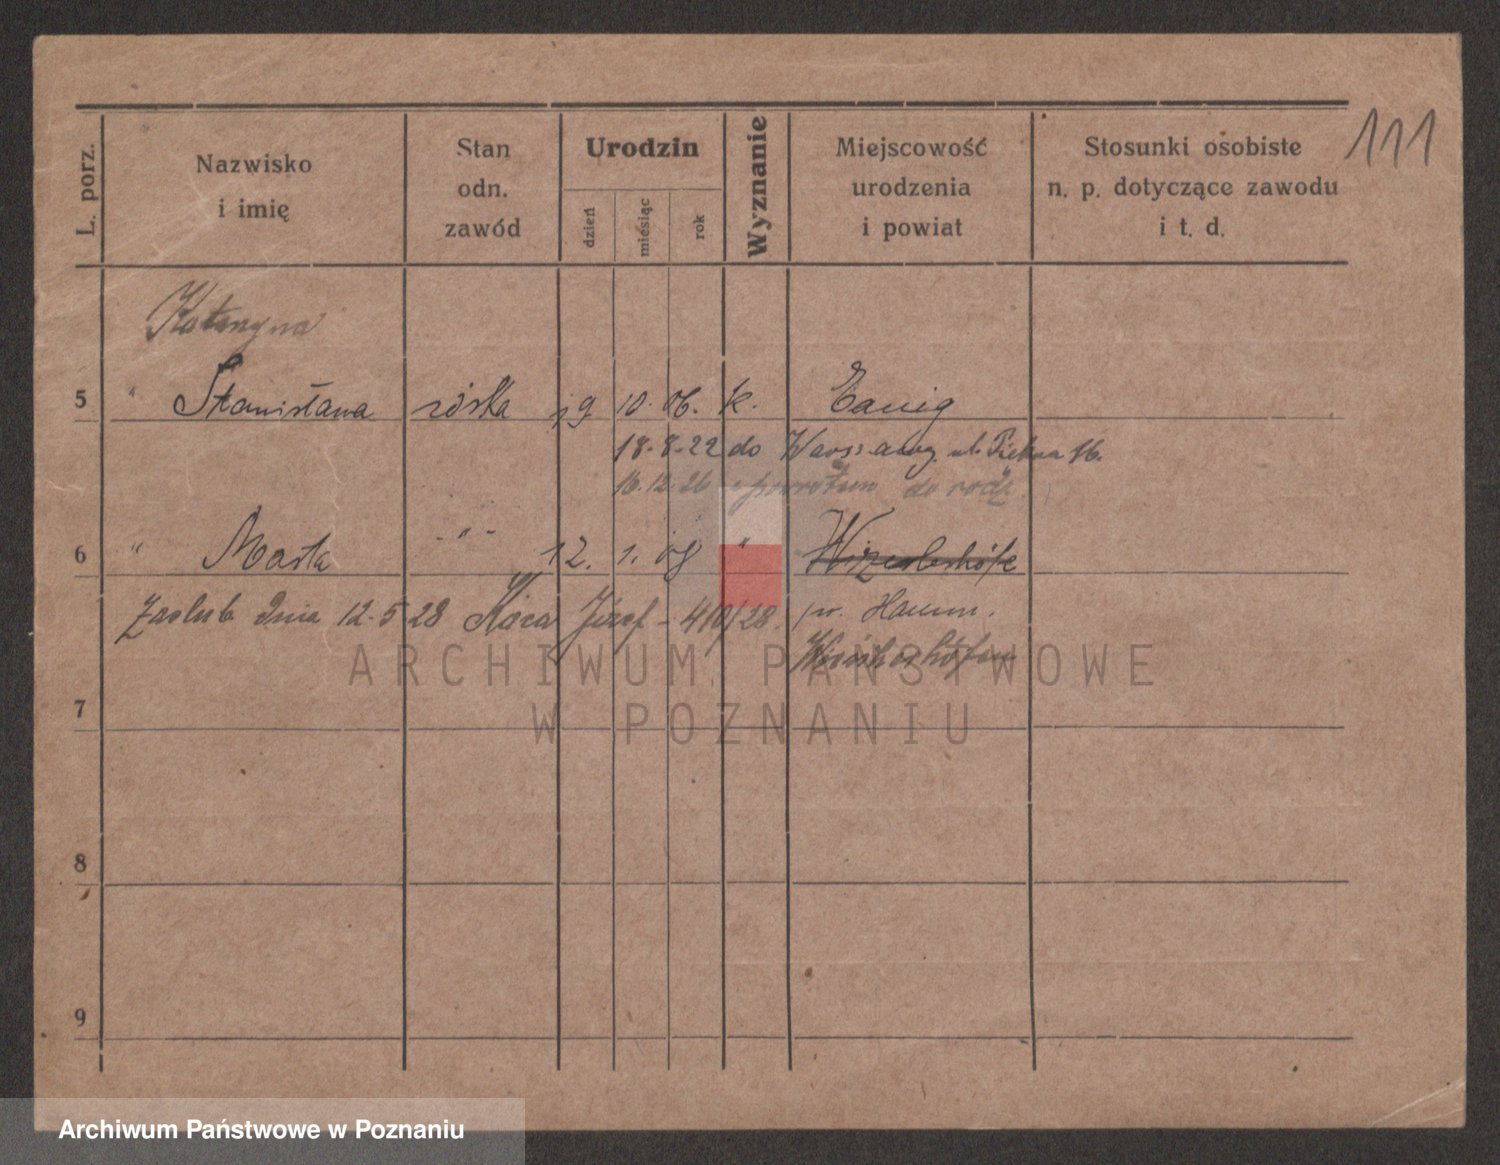 111
L. porz.
Nazwisko
i imię
Stan
odn.
zawód
Urodzin
dzień
miesiąc
rok
Wyznanie
Miejscowość
urodzenia
i powiat
Stosunki osobiste
n. p. dotyczące zawodu
i t. d.
Katarzyna
5 " Stanisława córka 19 10. 06. k.
18.8.22 do Warszawy ul. Piękna 16.
16.12.26 z powrotem do rodz.
6 " Marta - " - 12. 1. 08 "
Zaślub dnia 12.5.28 Józef - 410/28. pr. Hamm.
ARCHIWUM PAŃSTWOWE
W POZNANIU
7
8
9
Archiwum Państwowe w Poznaniu